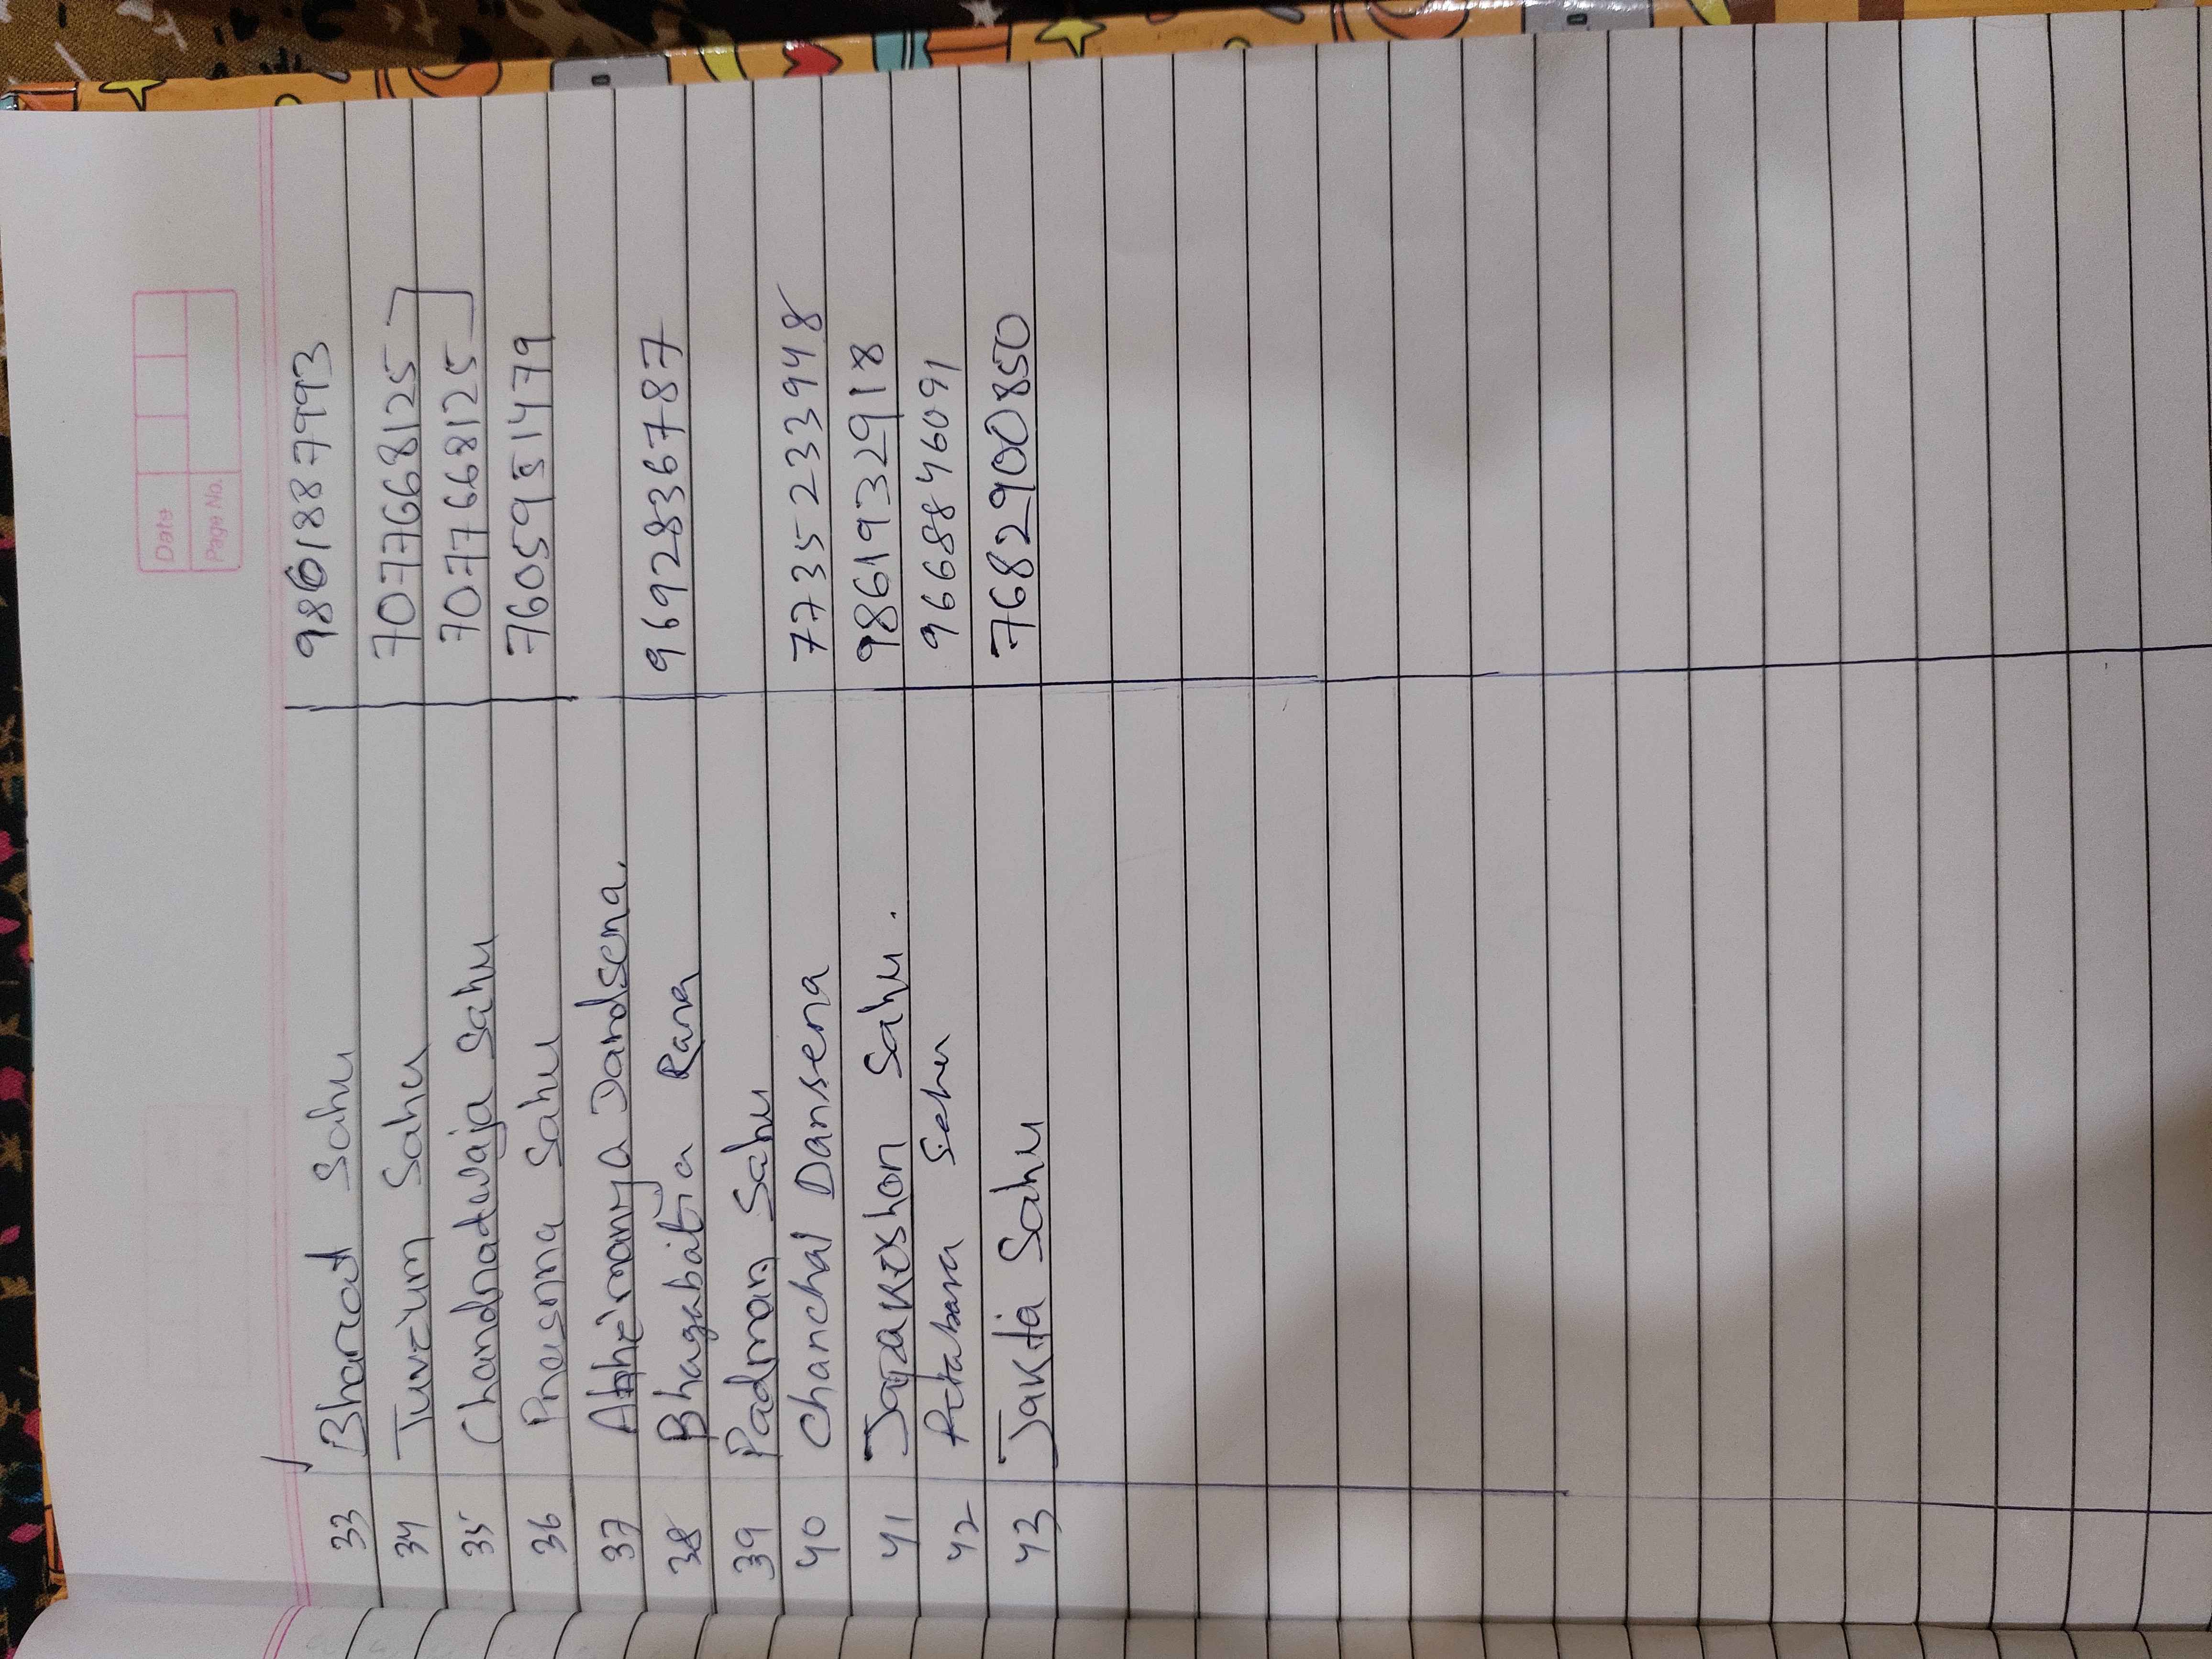 Date
Page No.
33 Bharat Sahu 9861887993
34 Sahu 7077668125
35 Chandradwaja Sahu 7077668125
36 Sahu 7605951479
37 Abhimanya Dandsena.
38 Bhagabatia Rana 9692836787
39 Padman Sahu
40 Chanchal Dansena 7735233948
41 Jayakishan Sahu. 9861932918
42 Pitabara Sahu 9668846091
43 Sahu 7682900850